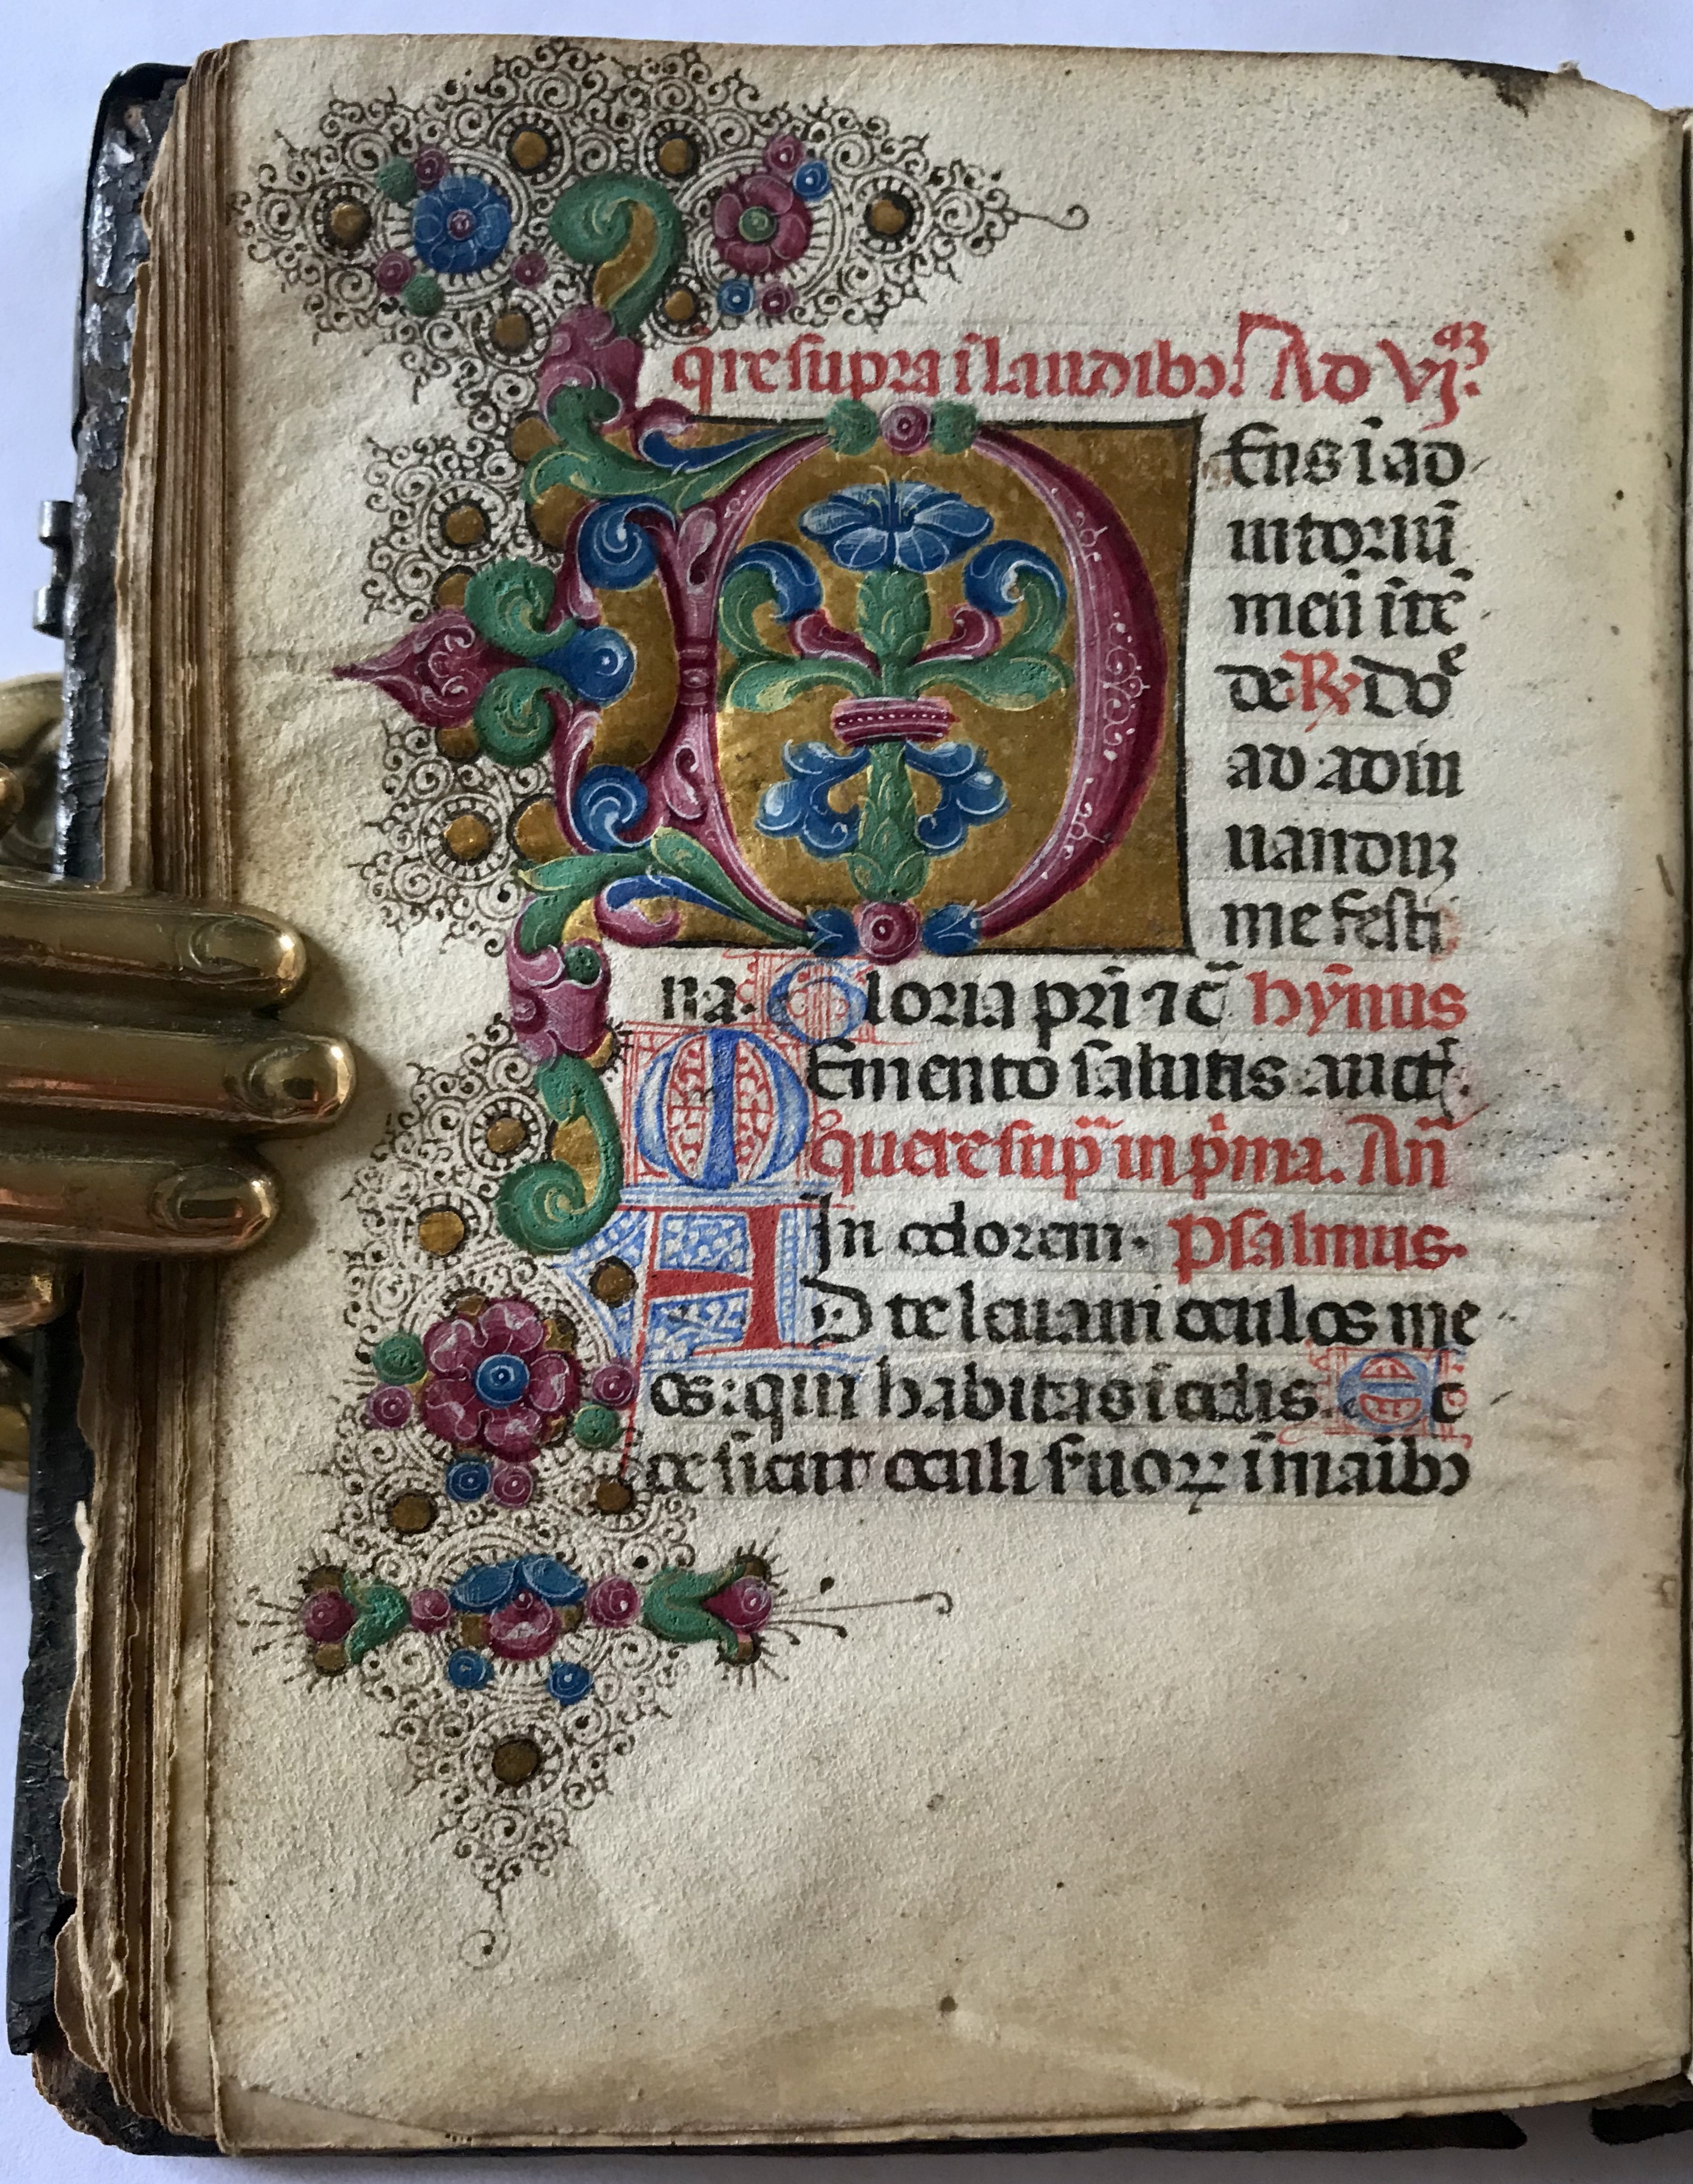 qre supra i laudibꝯ. Ad Vjᵃᵐ.
DEus ī ad
iutoriū
meū ītē
de ℞ Dōᵉ
ad adiu
uanduꝫ
me festi
na. Gloria pr̄i ⁊c̄ hȳnus
MEmento salutis auct̉.
quere supᵃ in pⁱma. An̄
In odorem. psalmus.
AD te leuaui oculos me
os: qui habitas ī celis. Ec
ce sicut oculi suoꝝ ī maībꝯ